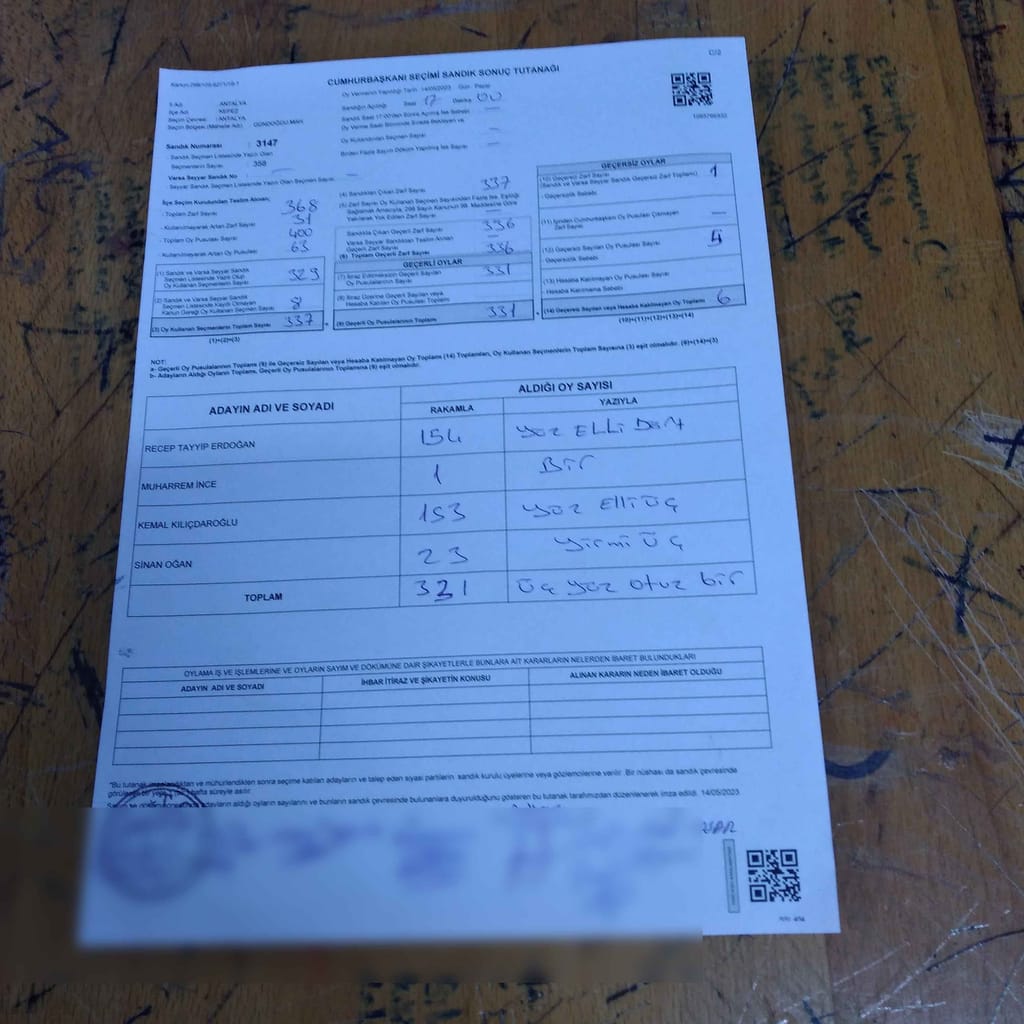 C/2
CUMHURBAŞKANI SEÇİMİ SANDIK SONUÇ TUTANAĞI
Oy Vermenin Yapıldığı Tarih 14/05/2023 Gün : Pazar
İl Adı : ANTALYA
İlçe Adı : KEPEZ
Seçim Çevresi : ANTALYA
Seçim Bölgesi (Mahalle Adı) : GÜNDOĞDU MAH.
Sandığın Açıldığı Saat 17 Dakika 00
Sandık Saat 17:00'den Sonra Açılmış İse Sebebi
Oy Verme Saati Bitiminde Sırada Bekleyen ve
Oy Kullandırılan Seçmen Sayısı
Birden Fazla Sayım Döküm Yapılmış İse Sayısı
Sandık Numarası : 3147
Sandık Seçmen Listesinde Yazılı Olan
Seçmenlerin Sayısı : 358
Varsa Seyyar Sandık No
Seyyar Sandık Seçmen Listesinde Yazılı Olan Seçmen Sayısı
İlçe Seçim Kurulundan Teslim Alınan;
- Toplam Zarf Sayısı 368
- Kullanılmayarak Artan Zarf Sayısı 31
- Toplam Oy Pusulası Sayısı 400
- Kullanılmayarak Artan Oy Pusulası 63
(1) Sandık ve Varsa Seyyar Sandık
Seçmen Listesinde Yazılı Olup
Oy Kullanan Seçmenlerin Sayısı 329
(2) Sandık ve Varsa Seyyar Sandık
Seçmen Listesinde Kayıtlı Olmayan
Kanun Gereği Oy Kullanan Seçmenlerin Sayısı 8
(3) Oy Kullanan Seçmenlerin Toplam Sayısı 337
(1)+(2)=(3)
(4) Sandıktan Çıkan Zarf Sayısı 337
(5) Zarf Sayısı Oy Kullanan Seçmen Sayısından Fazla İse, Eşitliği
Sağlamak Amacıyla, 298 Sayılı Kanunun 98. Maddesine Göre
Yakılarak Yok Edilen Zarf Sayısı
Sandıkta Çıkan Geçerli Zarf Sayısı 336
Varsa Seyyar Sandıktan Teslim Alınan
Geçerli Zarf Sayısı
(6) Toplam Geçerli Zarf Sayısı 336
GEÇERLİ OYLAR
(7) İtiraz Edilmeksizin Geçerli Sayılan
Oy Pusulalarının Sayısı 331
(8) İtiraz Üzerine Geçerli Sayılan veya
Hesaba Katılan Oy Pusulası Toplamı
(9) Geçerli Oy Pusulalarının Toplamı 331
GEÇERSİZ OYLAR
(10) Geçersiz Zarf Sayısı 1
(Sandık ve Varsa Seyyar Sandık Geçersiz Zarf Toplamı)
- Geçersizlik Sebebi
(11) İçinden Cumhurbaşkanı Oy Pusulası Çıkmayan
Zarf Sayısı
(12) Geçersiz Sayılan Oy Pusulası Sayısı
- Geçersizlik Sebebi
(13) Hesaba Katılmayan Oy Pusulası Sayısı
- Hesaba Katılmama Sebebi
(14) Geçersiz Sayılan veya Hesaba Katılmayan Oy Toplamı 6
(10)+(11)+(12)+(13)=(14)
NOT:
a- Geçerli Oy Pusulalarının Toplamı (9) ile Geçersiz Sayılan veya Hesaba Katılmayan Oy Toplamı (14) Toplamları, Oy Kullanan Seçmenlerin Toplam Sayısına (3) eşit olmalıdır. (9)+(14)=(3)
b- Adayların Aldığı Oyların Toplamı, Geçerli Oy Pusulalarının Toplamına (9) eşit olmalıdır.
ADAYIN ADI VE SOYADI
ALDIĞI OY SAYISI
RAKAMLA YAZIYLA
RECEP TAYYİP ERDOĞAN 154 yüz ELLi Dört
MUHARREM İNCE 1 Bir
KEMAL KILIÇDAROĞLU 153 yüz Elli üç
SİNAN OĞAN 23 yirmi üç
TOPLAM 331 üç yüz otuz bir
OYLAMA İŞ VE İŞLEMLERİNE VE OYLARIN SAYIM VE DÖKÜMÜNE DAİR ŞİKAYETLERLE BUNLARA AİT KARARLARIN NELERDEN İBARET BULUNDUKLARI
ADAYIN ADI VE SOYADI İHBAR İTİRAZ VE ŞİKAYETİN KONUSU ALINAN KARARIN NEDEN İBARET OLDUĞU
*Bu tutanak imzalandıktan ve mühürlendikten sonra seçime katılan adayların ve talep eden siyasi partilerin sandık kurulu üyelerine veya gözlemcilerine verilir. Bir nüshası da sandık çevresinde
görülebilen bir yere bir hafta süreyle asılır.
adayların aldığı oyların sayılarını ve bunların sandık çevresinde bulunanlara duyurulduğunu gösteren bu tutanak tarafımızdan düzenlenerek imza edildi. 14/05/2023